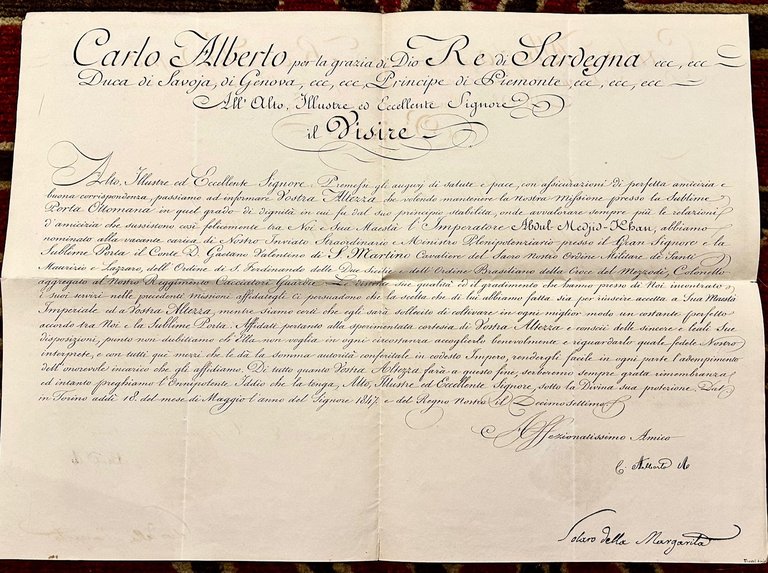 Carlo Alberto per la grazia di Dio Re di Sardegna ecc, ecc
Duca di Savoja, di Genova, ecc, ecc, Principe di Piemonte, ecc, ecc, ecc
All' Alto, Illustre ed Eccellente Signore
il Visire
Alto, Illustre ed Eccellente Signore: Premessi gli augurj di salute e pace, con assicurazioni di perfetta amicizia e
buona corrispondenza, passiamo ad informare Vostra Altezza che volendo mantenere la Nostra Missione presso la Sublime
Porta Ottomana in quel grado di dignità in cui fu dal suo principio stabilita, onde avvalorare sempre più le relazioni
d'amicizia che sussistono così felicemente tra Noi e Sua Maestà l'Imperatore Abdul-Medjid-Khan, abbiamo
nominato alla vacante carica di Nostro Inviato Straordinario e Ministro Plenipotenziario presso il Gran Signore e la
Sublime Porta il Conte D. Gaetano Valentino di S. Martino Cavaliere del Sacro Nostro Ordine Militare de' Santi
Maurizio e Lazzaro, dell'Ordine di S. Ferdinando delle Due Sicilie e dell'Ordine Brasiliano della Croce del Mezzodì, Colonello
aggregato al Nostro Reggimento Cacciatori Guardie. Le sue qualità ed il gradimento che hanno presso di Noi incontrato
i suoi servizi nelle precedenti Missioni affidategli ci persuadono che la scelta che di lui abbiamo fatta sia per riuscire accetta a Sua Maestà
Imperiale ed a Vostra Altezza, mentre Siamo certi che egli sarà sollecito di coltivare in ogni miglior modo un costante e perfetto
accordo tra Noi e la Sublime Porta. Affidati pertanto alla sperimentata cortesia di Vostra Altezza e conscii delle sincere e leali Sue
disposizioni, punto non dubitiamo ch'Ella non voglia in ogni circostanza accoglierlo benevolmente e riguardarlo quale fedele Nostro
interprete, e con tutti quei mezzi che le dà la somma autorità conferitale in codesto Impero, rendergli facile in ogni parte l'adempimento
dell'onorevole incarico che gli affidiamo. Di tutto quanto Vostra Altezza farà a questo fine, serberemo sempre grata rimembranza
ed intanto preghiamo l'Onnipotente Iddio che la tenga, Alto, Illustre ed Eccellente Signore, sotto la Divina sua protezione. Dat.
in Torino addì 18. del mese di Maggio l'anno del Signore 1847. e del Regno Nostro il Decimosettimo.
Affezionatissimo Amico
C. Alberto
Solaro della Margarita